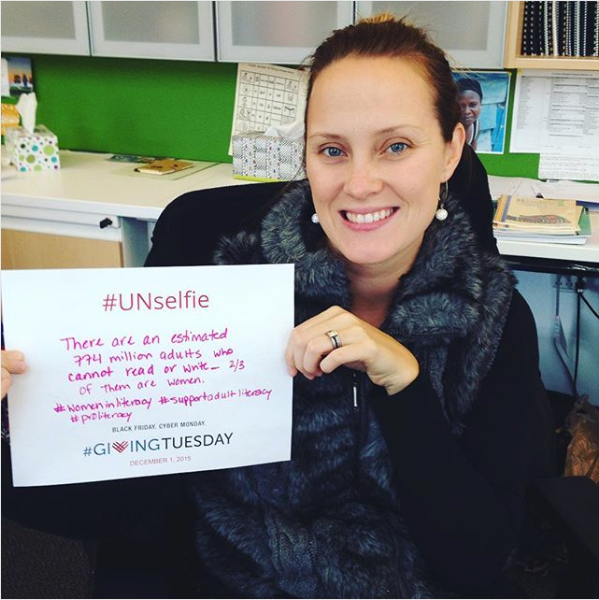 #UNselfie
There are an estimated
774 million adults who
cannot read or write — 2/3
of them are women.
#womeninliteracy #supportadultliteracy
#proliteracy
BLACK FRIDAY. CYBER MONDAY.
#GIVINGTUESDAY
DECEMBER 1, 2015